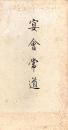 宴會常道